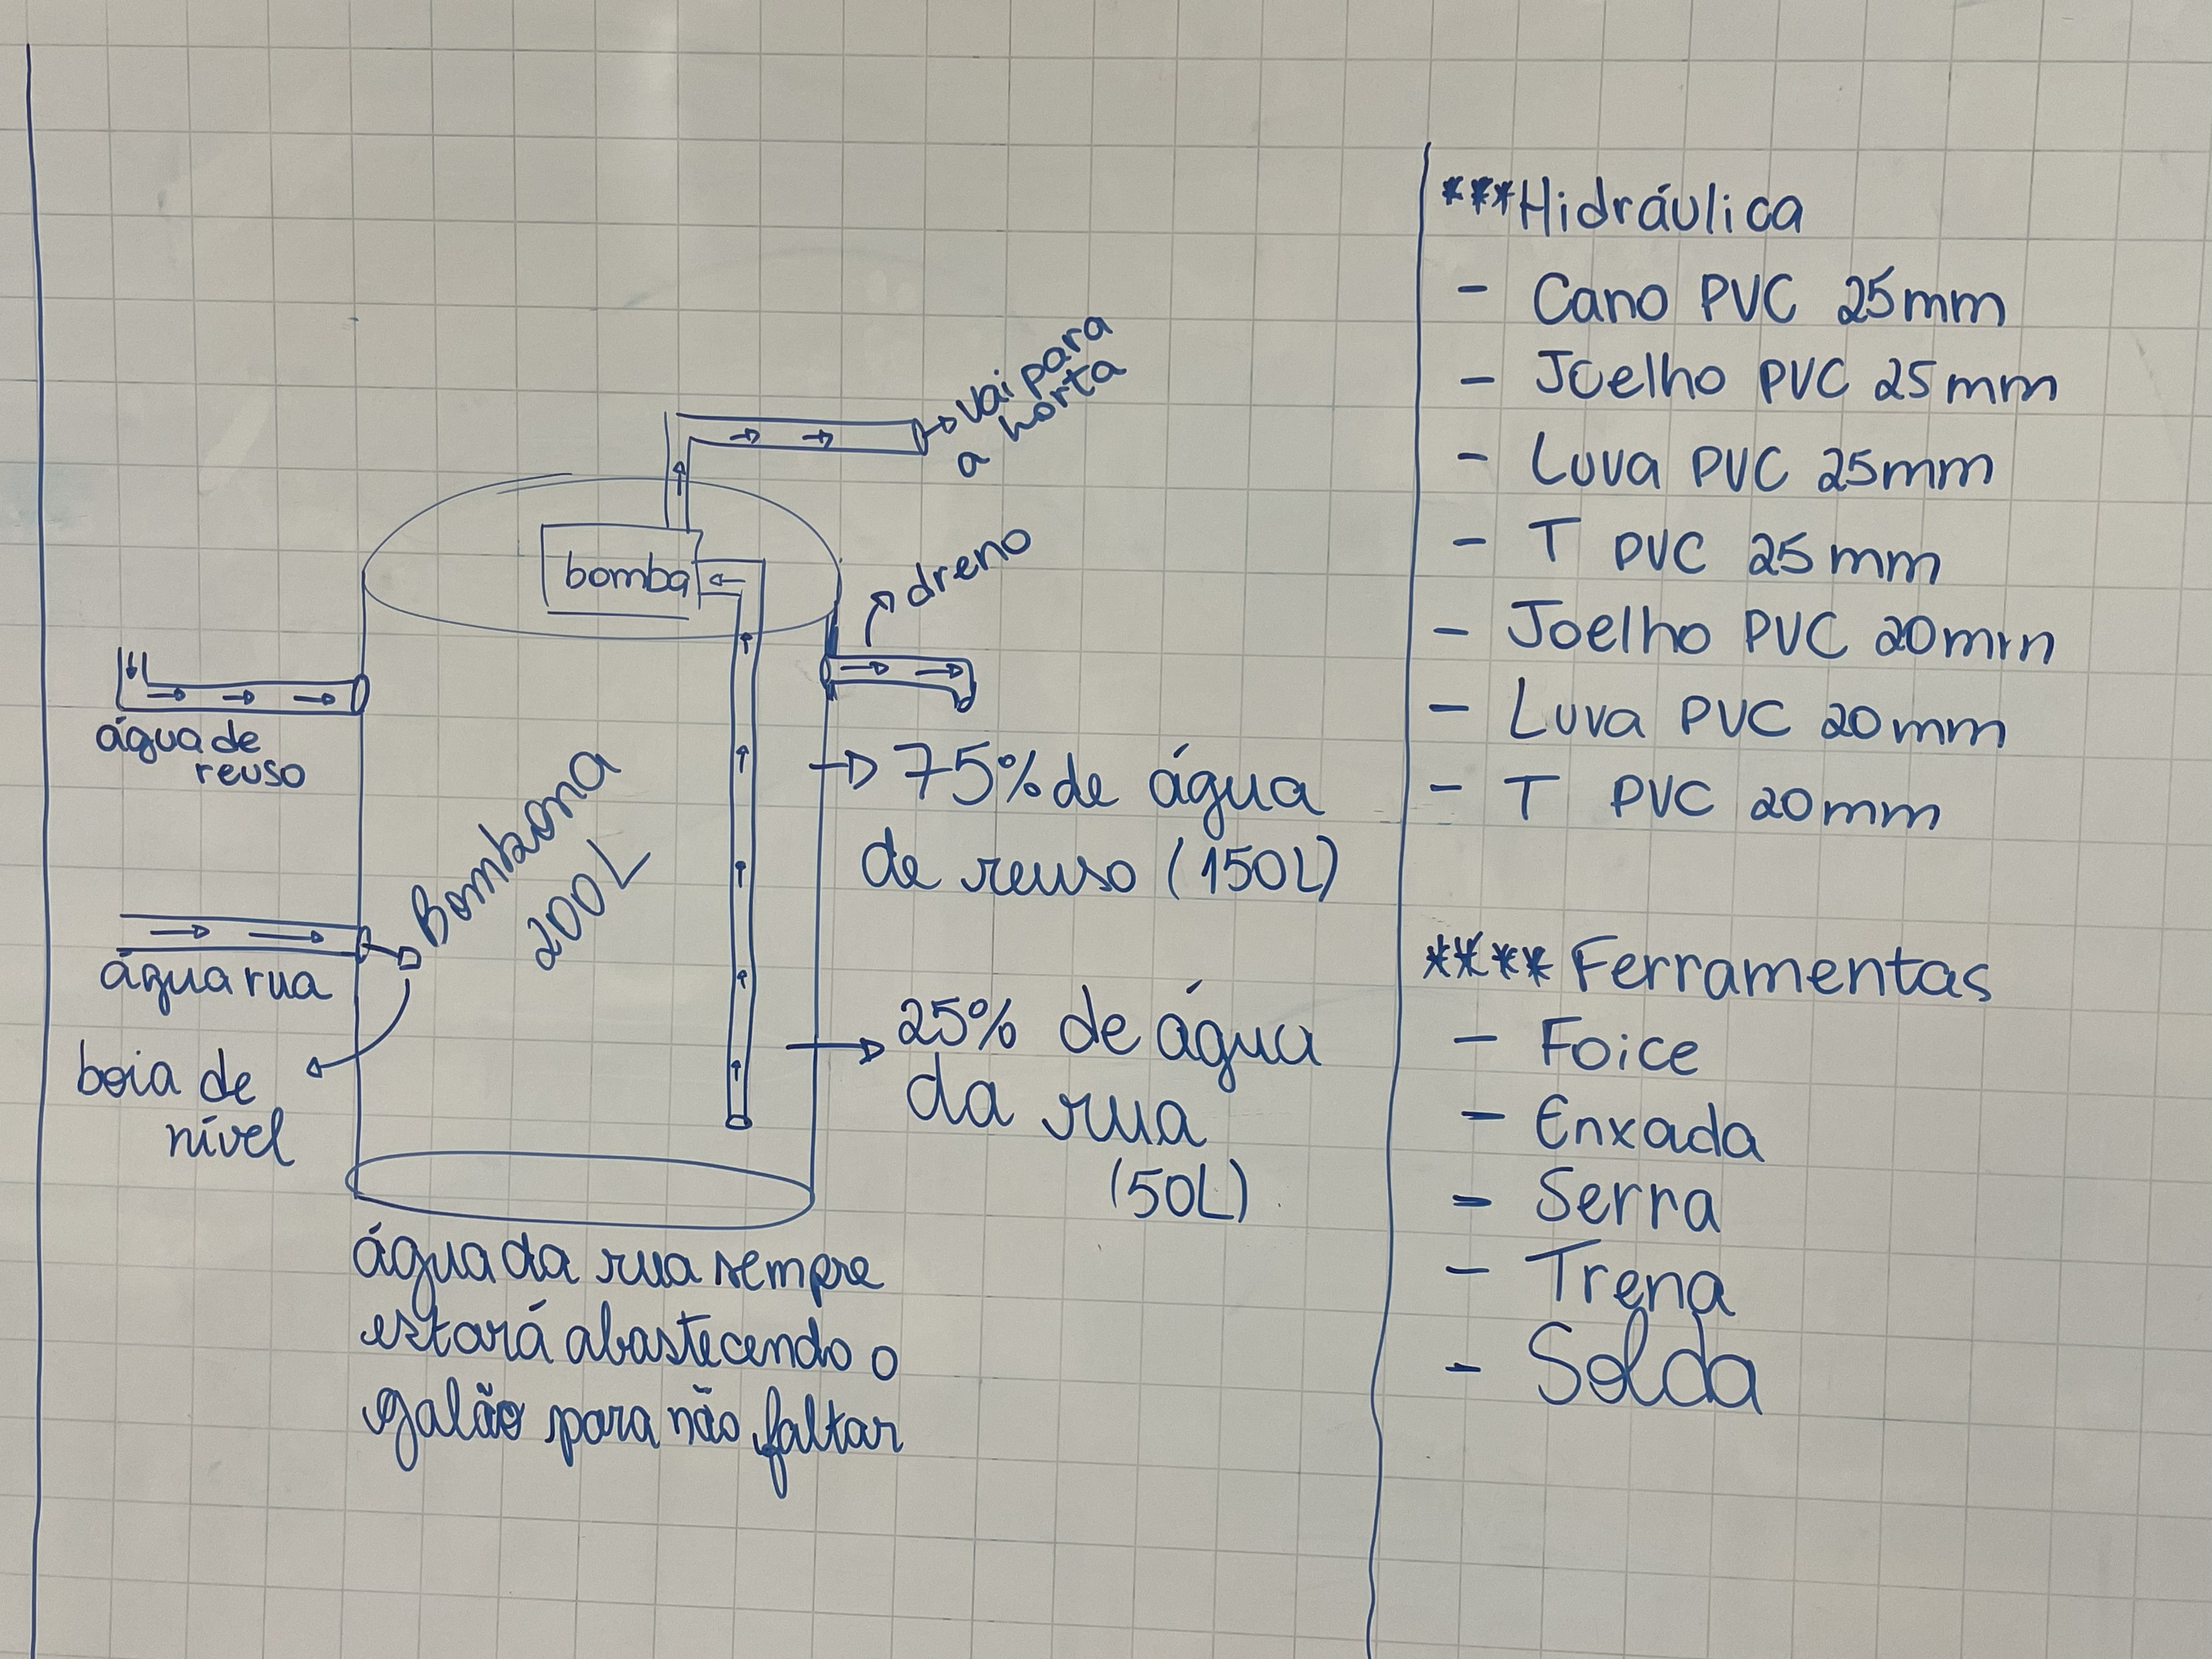 vai para
a horta
bomba
dreno
água de
reuso
Bombona
200L
75% de água
de reuso (150L)
água rua
boia de
nível
25% de água
da rua
(50L)
água da rua sempre
estará abastecendo o
galão para não faltar
***Hidráulica
- Cano PVC 25mm
- Joelho PVC 25mm
- Luva PVC 25mm
- T PVC 25mm
- Joelho PVC 20mm
- Luva PVC 20mm
- T PVC 20mm
**** Ferramentas
- Foice
- Enxada
- Serra
- Trena
- Solda